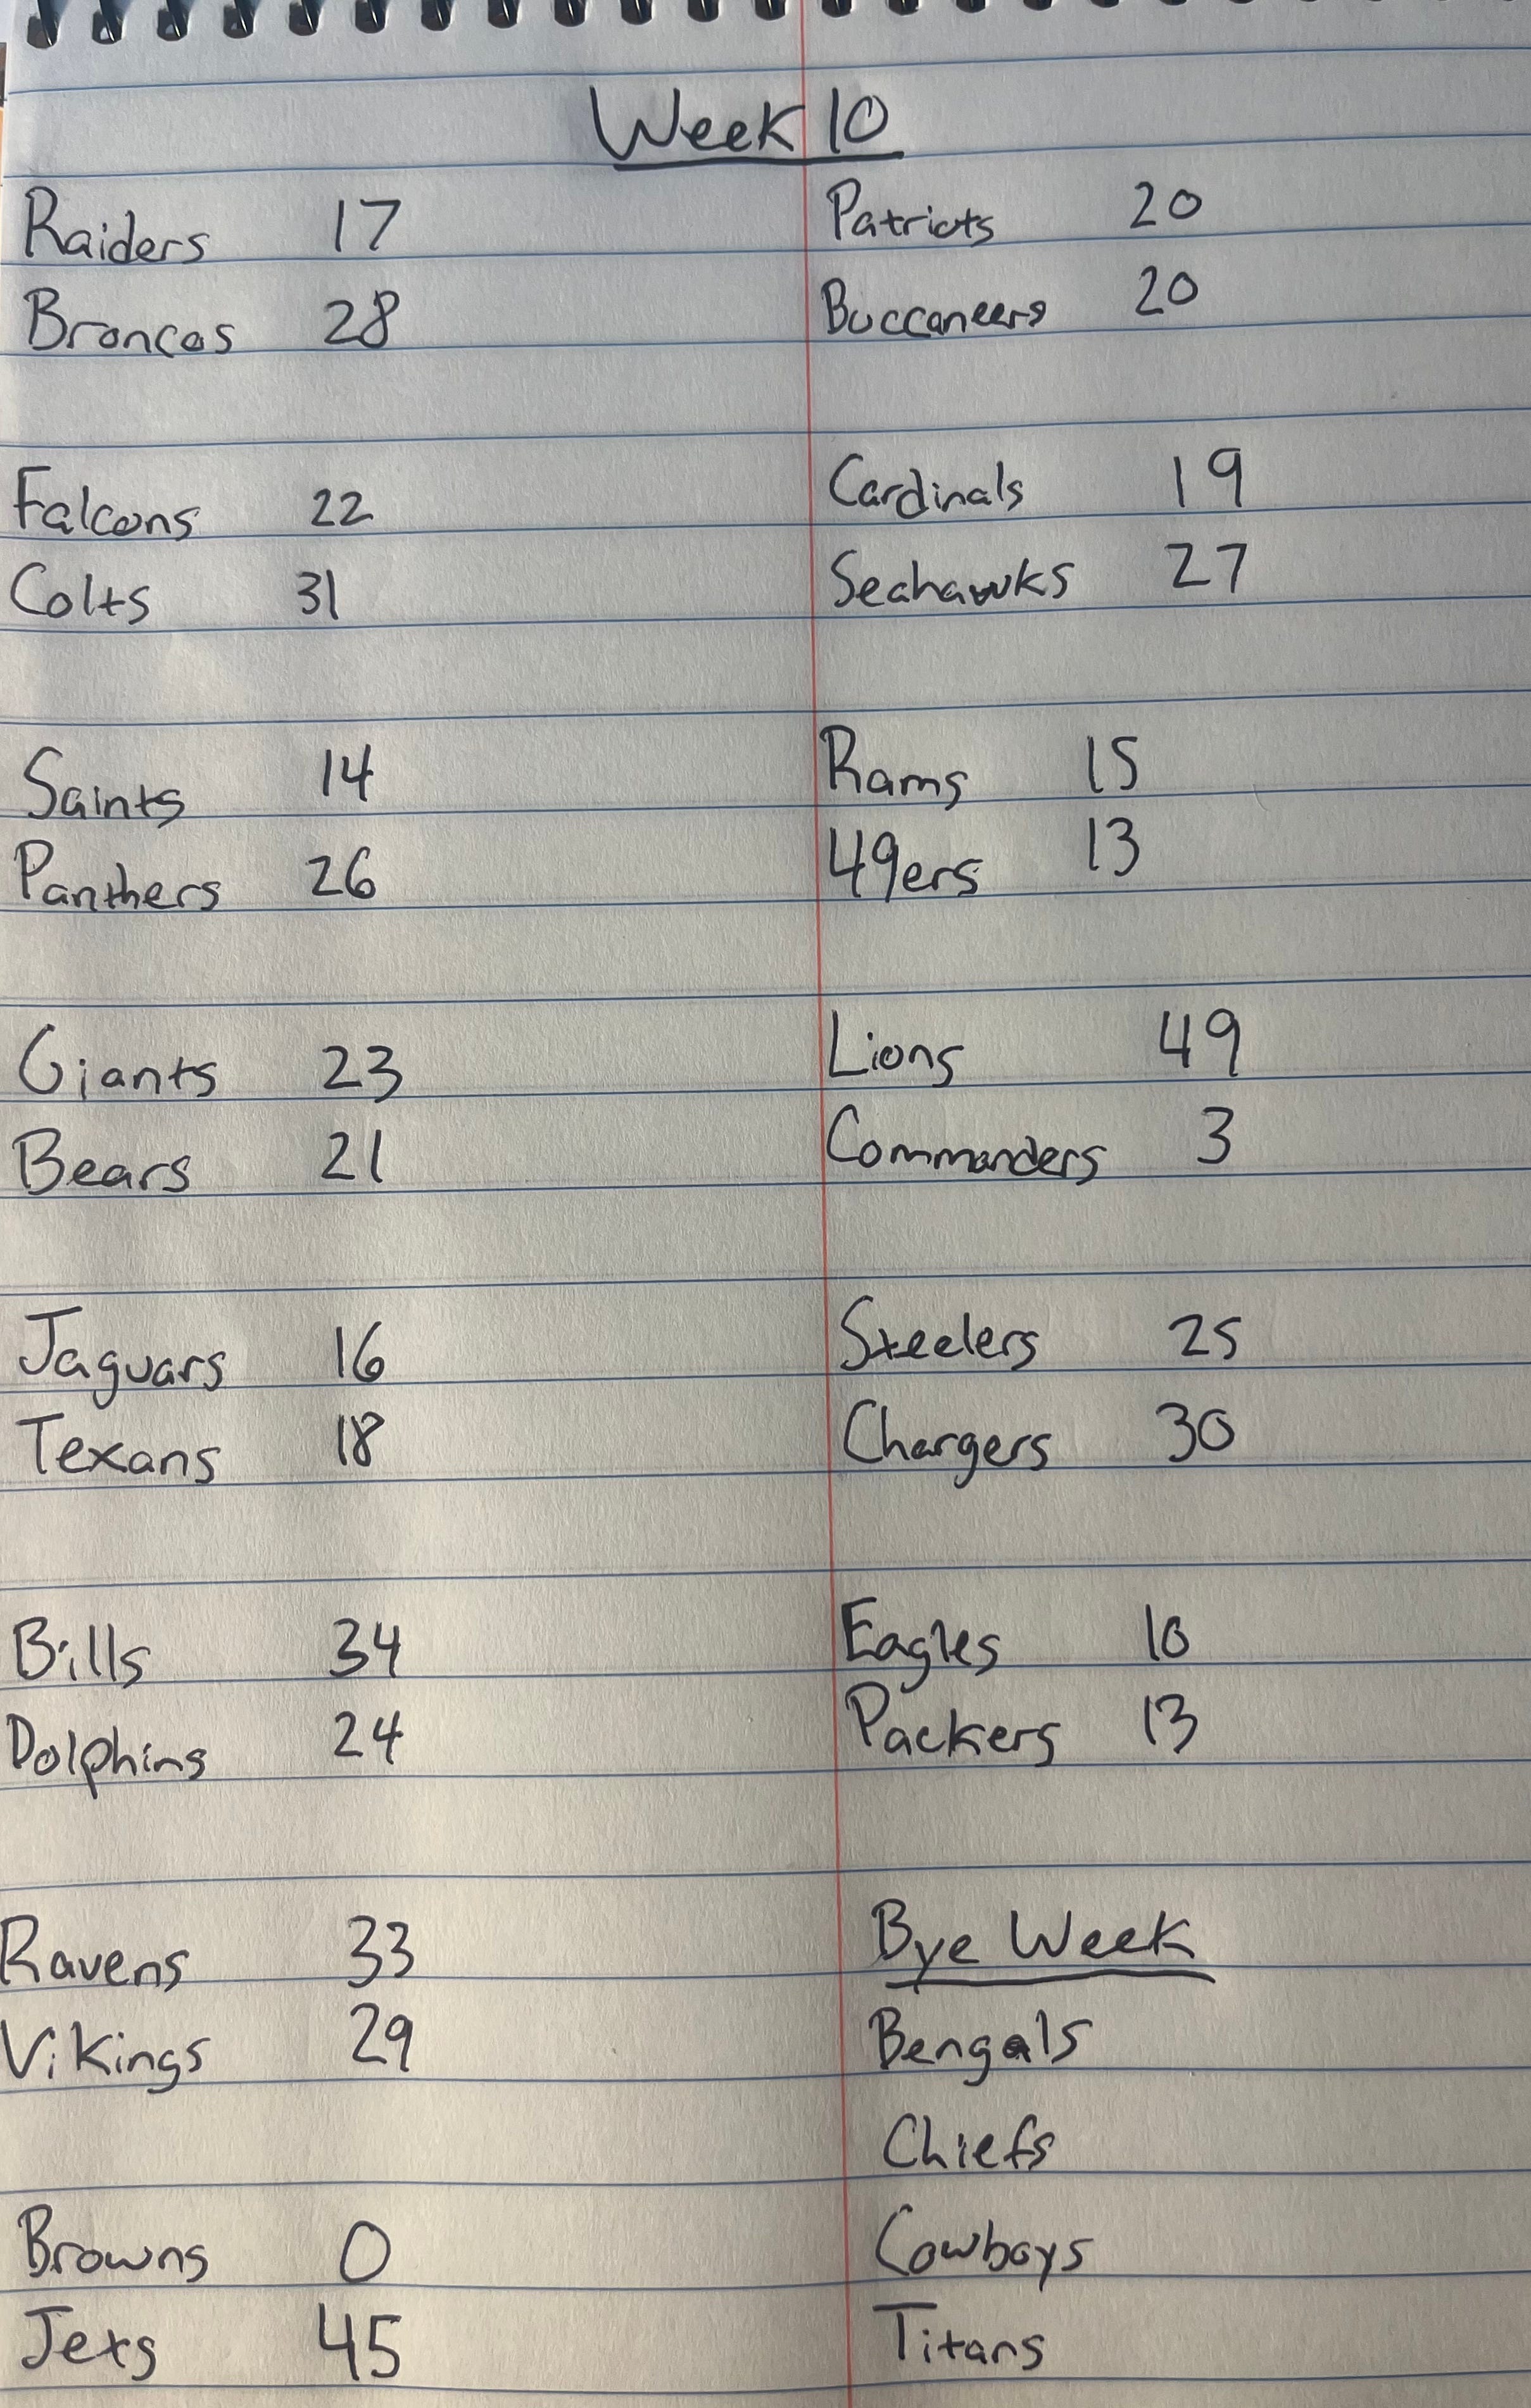 Week 10
Raiders 17
Broncos 28
Falcons 22
Colts 31
Saints 14
Panthers 26
Giants 23
Bears 21
Jaguars 16
Texans 18
Bills 34
Dolphins 24
Ravens 33
Vikings 29
Browns 0
Jets 45
Patriots 20
Buccaneers 20
Cardinals 19
Seahawks 27
Rams 15
49ers 13
Lions 49
Commanders 3
Steelers 25
Chargers 30
Eagles 10
Packers 13
Bye Week
Bengals
Chiefs
Cowboys
Titans